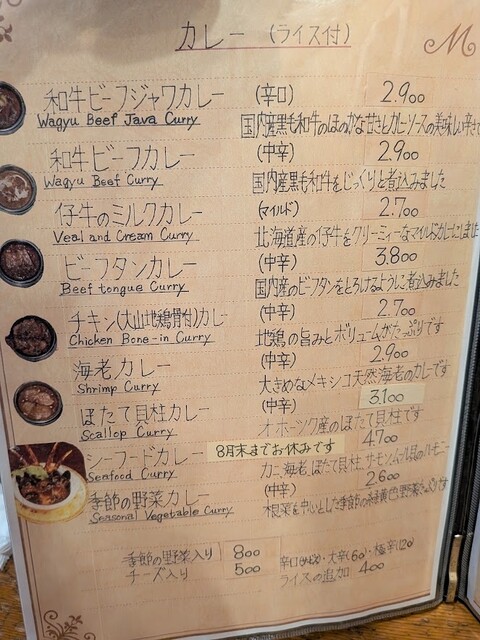 カレー (ライス付)
M
和牛ビーフジャワカレー (辛口) 2.900
Wagyu Beef Java Curry 国内産黒毛和牛のほのかな甘さとカレーソースの美味しい辛さ
和牛ビーフカレー (中辛) 2.900
Wagyu Beef Curry 国内産黒毛和牛をじっくりと煮込みました
仔牛のミルクカレー (マイルド) 2.700
Veal and Cream Curry 北海道産の仔牛をクリーミィーなマイルドカレーにしまし
ビーフタンカレー (中辛) 3.800
Beef tongue Curry 国内産のビーフタンをとろけるように煮込みました
チキン(大山地鶏骨付)カレー (中辛) 2.700
Chicken Bone-in Curry 地鶏の旨みとボリュームがたっぷりです
海老カレー (中辛) 2.900
Shrimp Curry 大きめなメキシコ天然海老のカレーです
ほたて貝柱カレー (中辛) 3.100
Scallop Curry オホーツク産のほたて貝柱です
シーフードカレー 8月末までお休みです 4.700
Seafood Curry カニ、海老、ほたて貝柱、サーモン、ムール貝のハーモニー
季節の野菜カレー (中辛) 2.600
Seasonal Vegetable Curry 根菜を中心とした季節の緑黄色野菜
季節の野菜入り 800
チーズ入り 500
辛口 ・大辛(60)・極辛(120)
ライスの追加 400